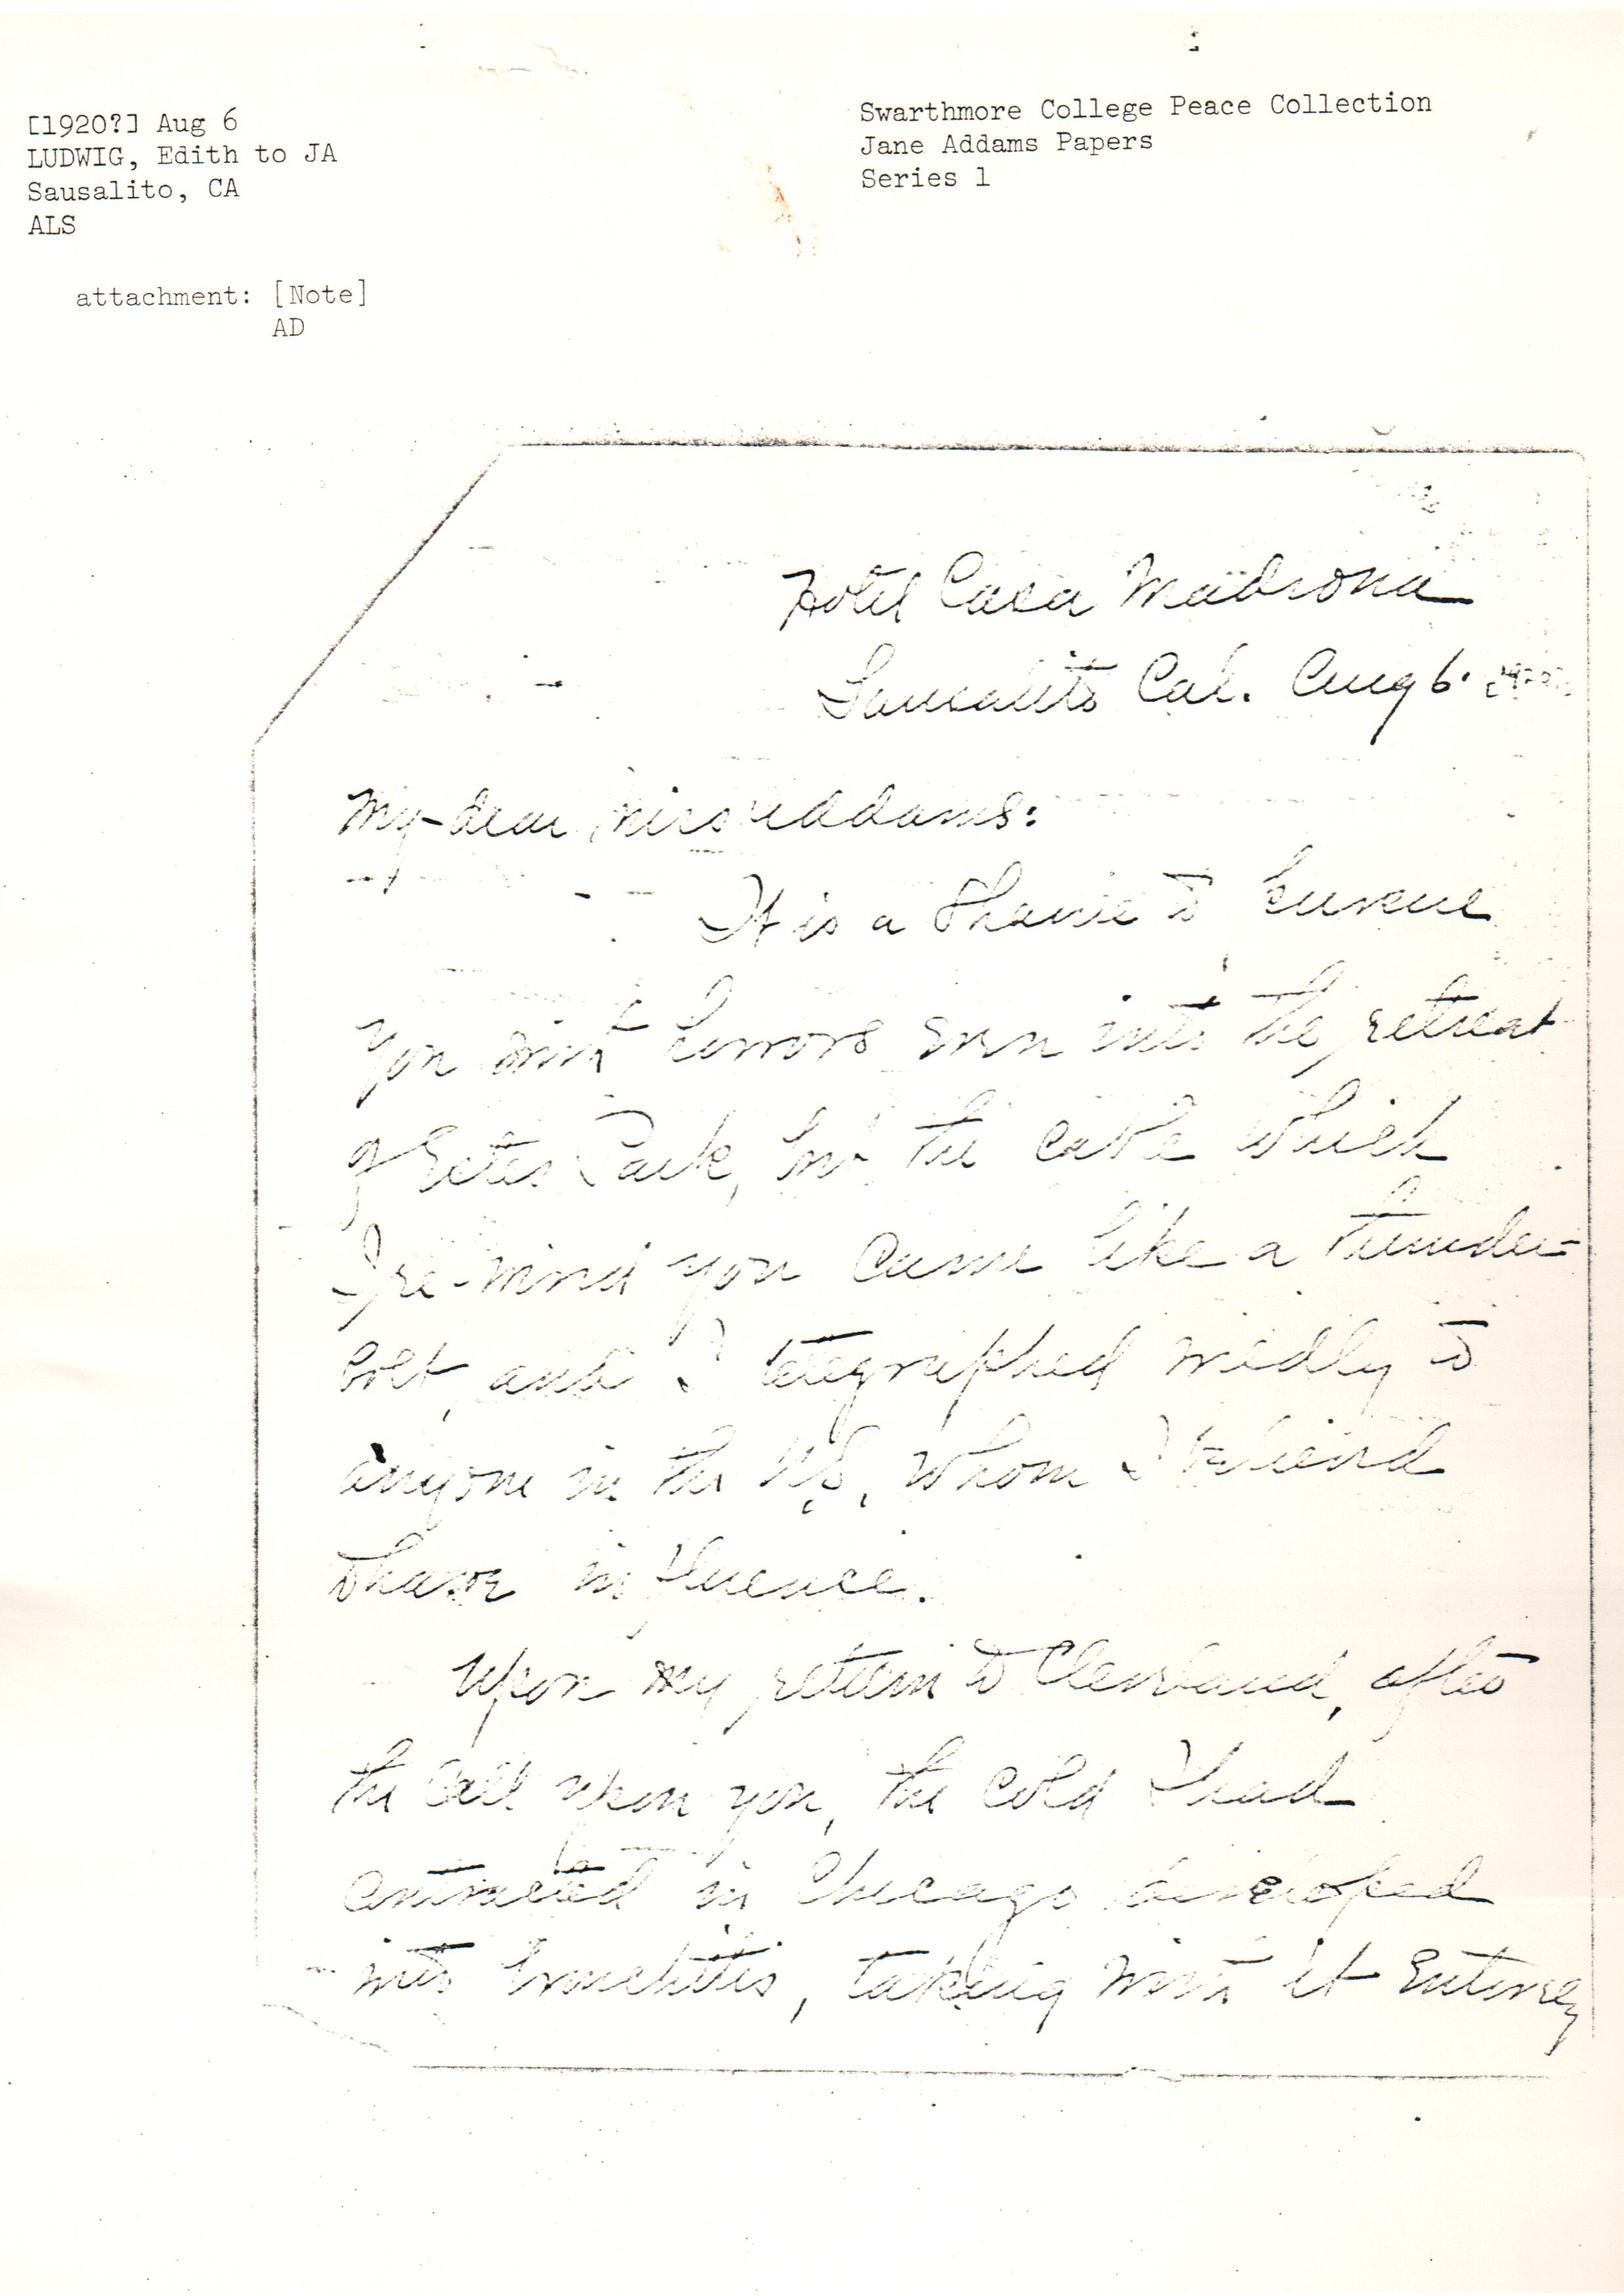 [1920?] Aug 6
LUDWIG, Edith to JA
Sausalito, CA
ALS
attachment: [Note]
AD
Swarthmore College Peace Collection
Jane Addams Papers
Series 1
Hotel Casa Madrona
Sausalito Cal. Aug 6.
My dear Miss Addams:
It is a shame to pursue
you with horrors even into the retreat
of Estes Park, but the cable which
I re-wired you came like a thunder-
bolt, and I telegraphed wildly to
anyone in the U.S. whom I believed
to have influence.
Upon my return to Cleveland, after
the call upon you, the cold I had
contracted in Chicago developed
into bronchitis, taking with it entirely